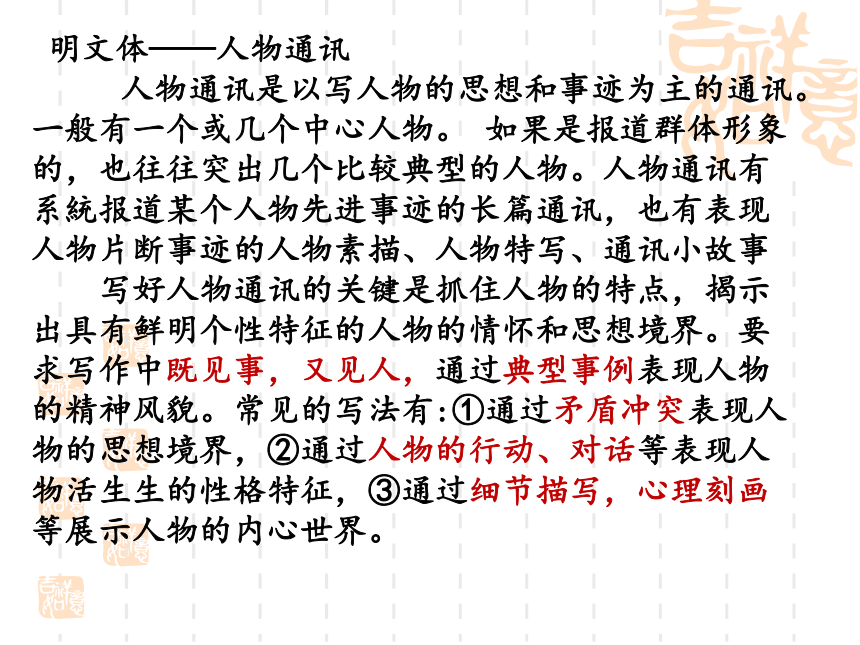 明文体——人物通讯
人物通讯是以写人物的思想和事迹为主的通讯。
一般有一个或几个中心人物。 如果是报道群体形象
的，也往往突出几个比较典型的人物。人物通讯有
系統报道某个人物先进事迹的长篇通讯，也有表现
人物片断事迹的人物素描、人物特写、通讯小故事
写好人物通讯的关键是抓住人物的特点，揭示
出具有鲜明个性特征的人物的情怀和思想境界。要
求写作中既见事，又见人，通过典型事例表现人物
的精神风貌。常见的写法有:①通过矛盾冲突表现人
物的思想境界，②通过人物的行动、对话等表现人
物活生生的性格特征，③通过细节描写，心理刻画
等展示人物的内心世界。
吉祥如意
吉祥如意
吉祥如意
吉祥如意
吉祥如意
吉祥如意
吉祥如意